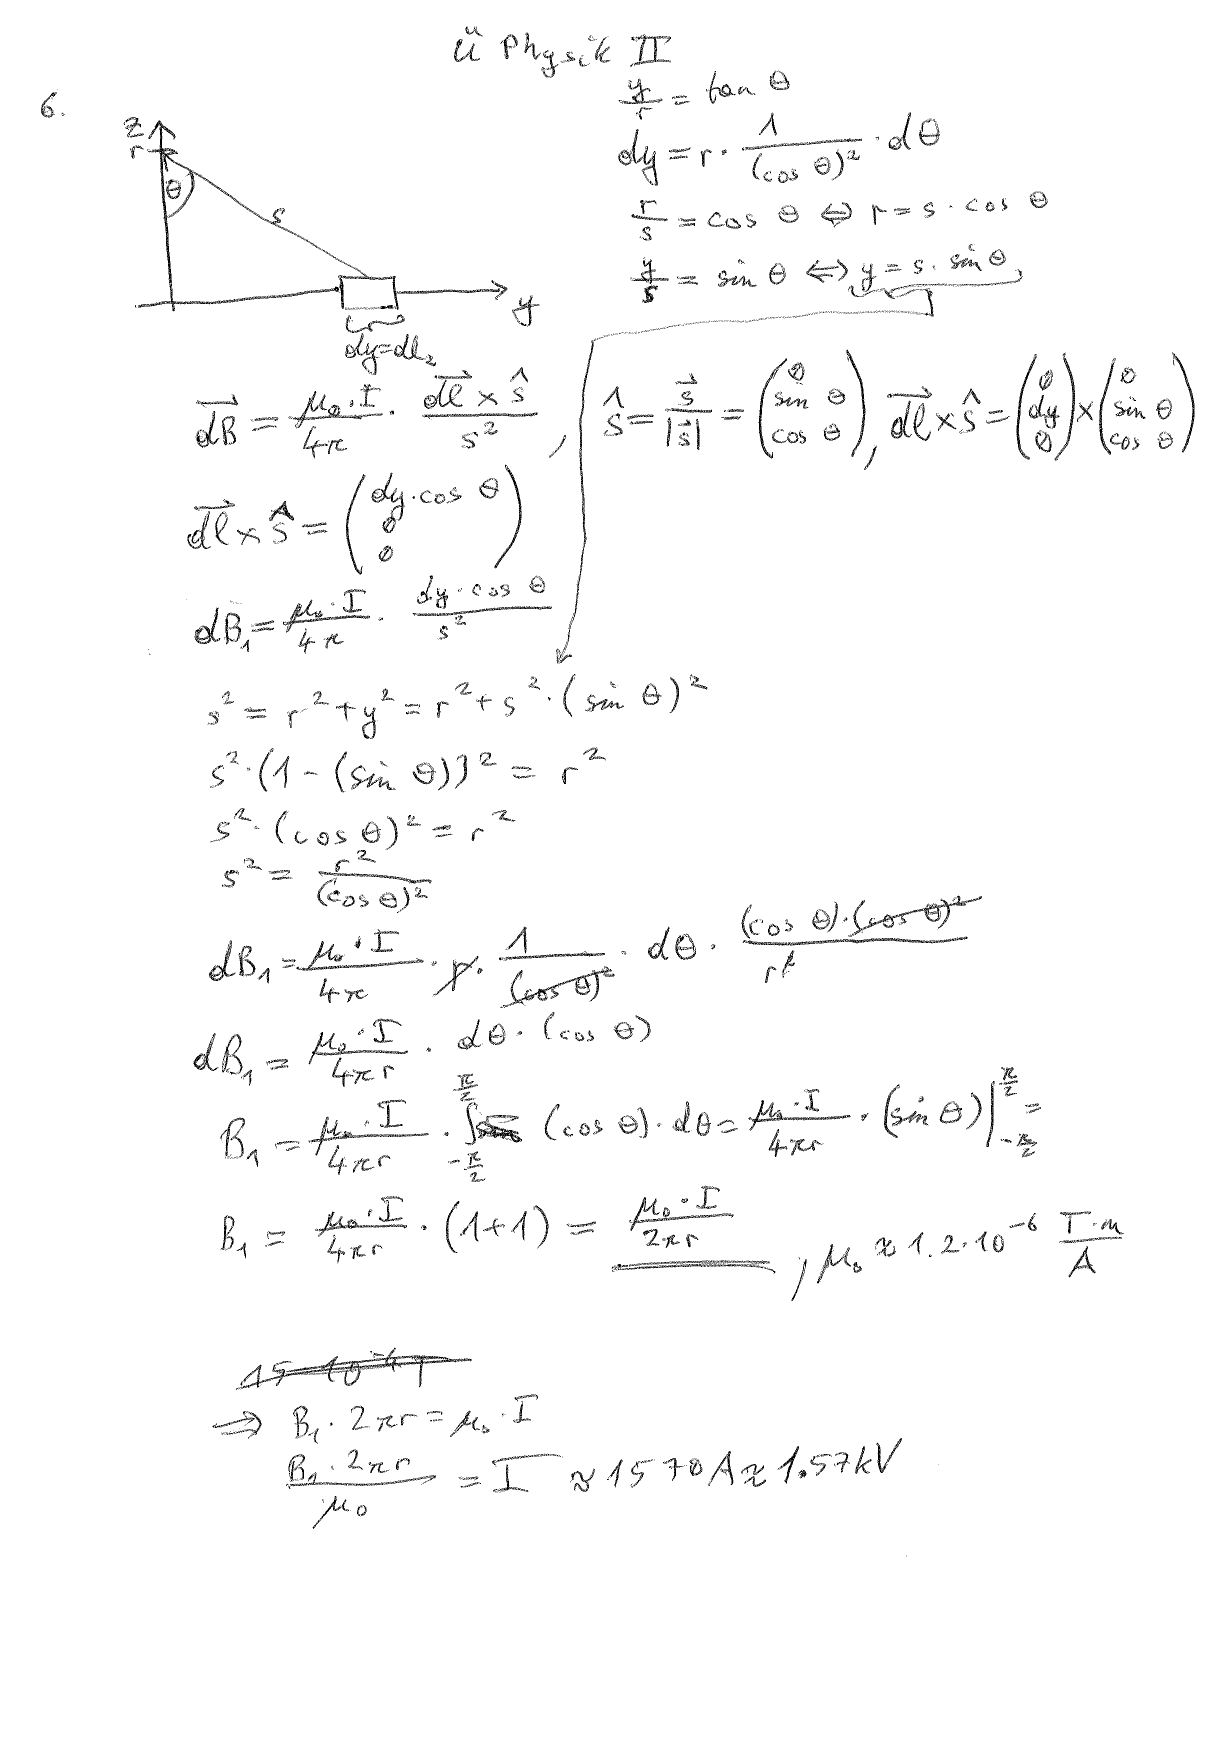 Ü Physik II
6.
y/r = tan θ
dy = r · 1/(cos θ)² · dθ
r/s = cos θ ⇔ r = s · cos θ
y/s = sin θ ⇔ y = s · sin θ
z
r
θ
s
y
dy=dl₂
d⃗B = μ₀·I/4π · d⃗l × ŝ/s² , ŝ = s⃗/|s⃗| = (0 sin θ cos θ), d⃗l × ŝ = (0 dy 0) × (0 sin θ cos θ)
d⃗l × ŝ = (dy·cos θ 0 0)
dB₁ = μ₀·I/4π · dy·cos θ/s²
s² = r² + y² = r² + s² · (sin θ)²
s² · (1 - (sin θ))² = r²
s² · (cos θ)² = r²
s² = r²/(cos θ)²
dB₁ = μ₀·I/4π · r · 1/(cos θ)² · dθ · (cos θ)·(cos θ)²/r²
dB₁ = μ₀·I/4πr · dθ · (cos θ)
B₁ = μ₀·I/4πr · ∫ -π/2 π/2 (cos θ) · dθ = μ₀·I/4πr · (sin θ) | -π/2 π/2 =
B₁ = μ₀·I/4πr · (1+1) = μ₀·I/2πr , μ₀ ≈ 1.2·10⁻⁶ T·m/A
⇒ B₁ · 2πr = μ₀ · I
B₁ · 2πr/μ₀ = I ≈ 1570 A ≈ 1.57kV